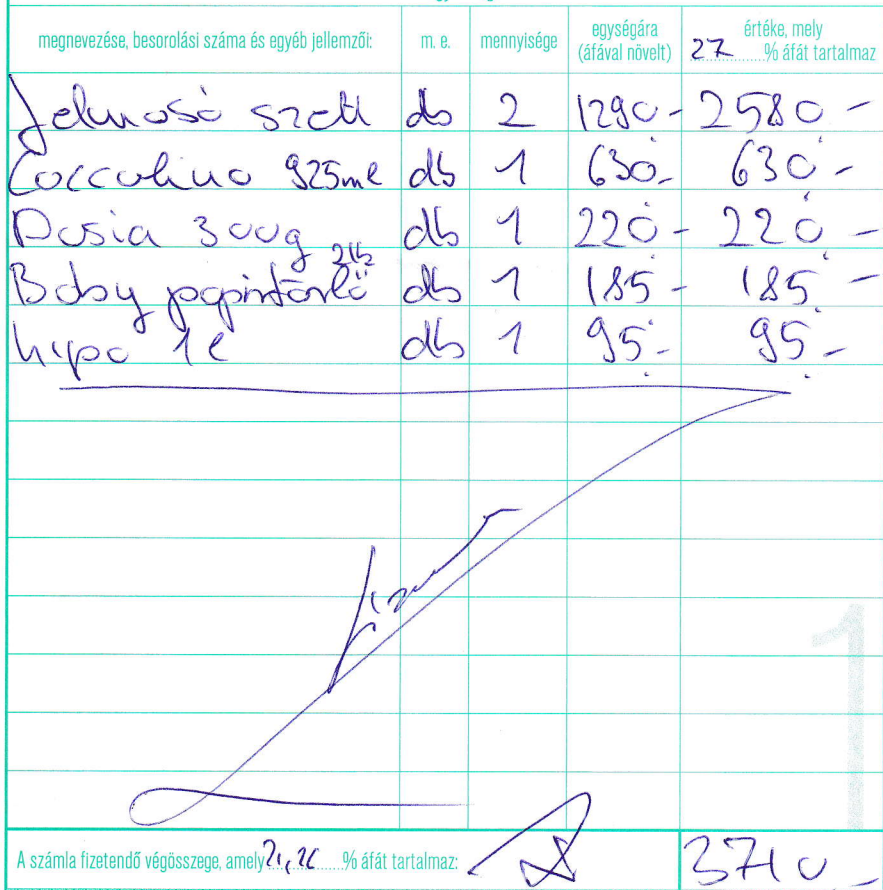 megnevezése, besorolási száma és egyéb jellemzői: m. e. mennyisége egységára (áfával növelt) 27 értéke, mely % áfát tartalmaz
szett db 2 1290- 2580-
Coccolino 925ml db 1 630.- 630.-
Dosia 300g db 1 220.- 220.-
Baby papírtörlő 2tk db 1 185.- 185.-
hypo 1l db 1 95.- 95.-
A számla fizetendő végösszege, amely 21,26 % áfát tartalmaz: 3710.-
1